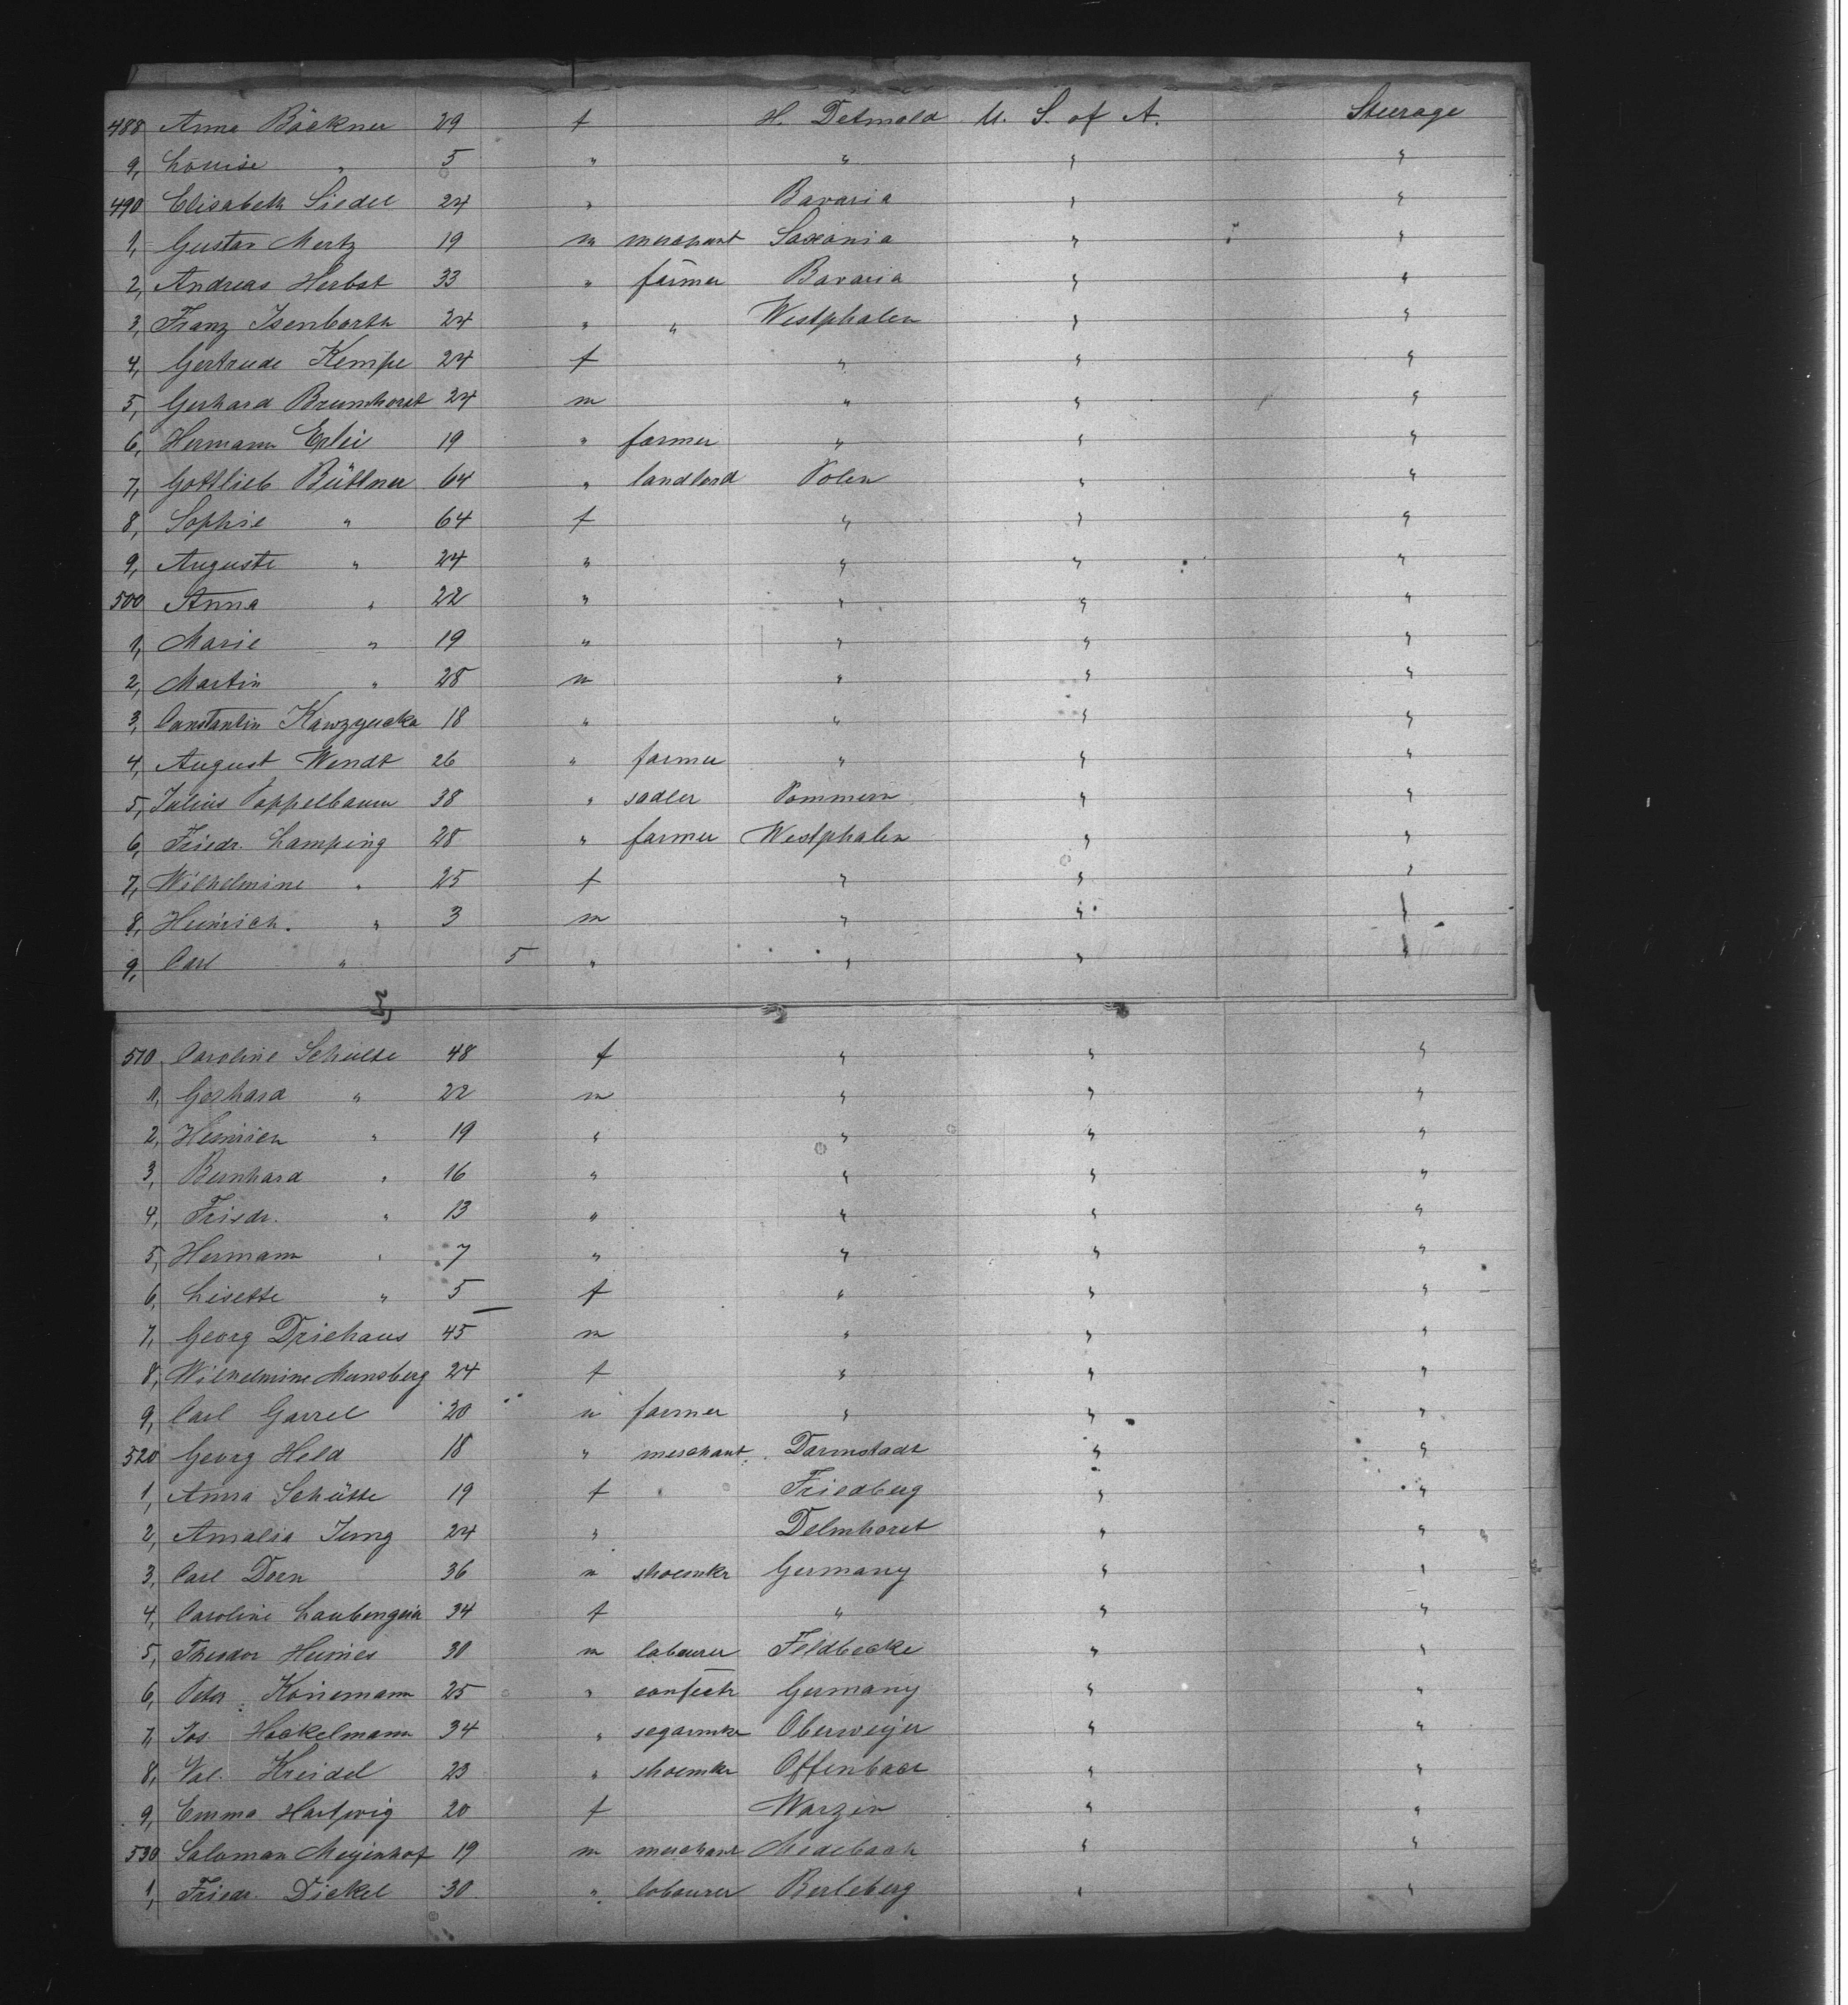 488 Anna Bäckner 29 f H. Detmold U. S. of A. Steerage
9, Louise " 5 " " " "
490 Elisabeth Siedel 24 " Bavaria " "
1, Gustav Mertz 19 m merchant Saxonia " "
2, Andreas Herbst 33 " farmer Bavaria " "
3, Franz Isenborth 24 " " Westphalen " "
4, Gertrude Kempe 24 f " " "
5, Gerhard Brumhorst 24 m " " "
6, Hermann Erlei 19 " farmer " " "
7, Gottlieb Büttner 64 " landlord Polen " "
8, Sophie " 64 f " " "
9, Auguste " 24 " " " "
500 Anna " 22 " " " "
1, Marie " 19 " " " "
2, Martin " 28 m " " "
3, Constantin 18 " " " "
4, August Wendt 26 " farmer " " "
5, Julius Poppelbaum 38 " sadler Pommern " "
6, Friedr. Lamping 28 " farmer Westphalen " "
7, Wilhelmine " 25 f " " "
8, Heinrich. " 3 m " " "
9, Carl " 5 " " " "
510 Caroline Schulte 48 f " " "
1, Gerhard " 22 m " " "
2, Heinrich " 19 " " " "
3, Bernhard " 16 " " " "
4, Friedr. " 13 " " " "
5, Hermann " 7 " " " "
6, Lisette " 5 f " " "
7, Georg Driehaus 45 m " " "
8, Wilhelmine Munsberg 24 f " " "
9, Carl Garrel 20 m farmer " " "
520 Georg Held 18 " merchant Darmstadt " "
1, Anna Schütte 19 f Friedberg " "
2, Amalia Jung 24 " Delmhorst " "
3, Carl Dorn 36 m shoemkr Germany " "
4, Caroline 34 f " " "
5, Theodor Heimes 30 m labourer Feldbecke " "
6, Peter Könemann 25 " confectr Germany " "
7, Jos. Hockelmann 34 " segarmkr Oberweyer " "
8, Val. Kreidel 23 " shoemkr Offenbach " "
9, Emma Hartwig 20 f Warzin " "
530 Saloman Meyenhof 19 m merchant Medebach " "
1, Friedr. Dickel 30 " labourer Berleberg " "